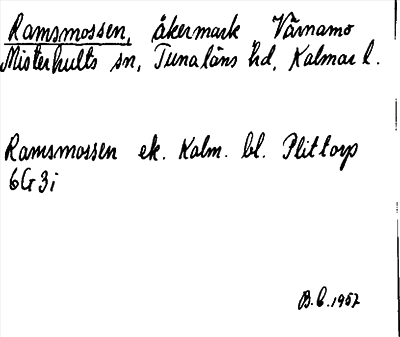 Ramsmossen, åkermark Värnamo
Misterhults sn, Tunaläns hd, Kalmar l.
Ramsmossen ek. Kalm. bl. Plittorp
6G3i
B.E. 1957